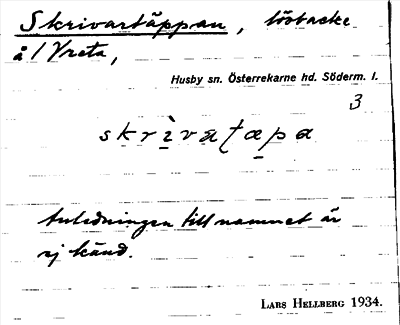 Skrivartäppan, lövbacke
å/ Vreta,
Husby sn. Österrekarne hd. Söderm. l.
3
skrìvaʈæpa
Anledningen till namnet är
ej känd.
LARS HELLBERG 1934.